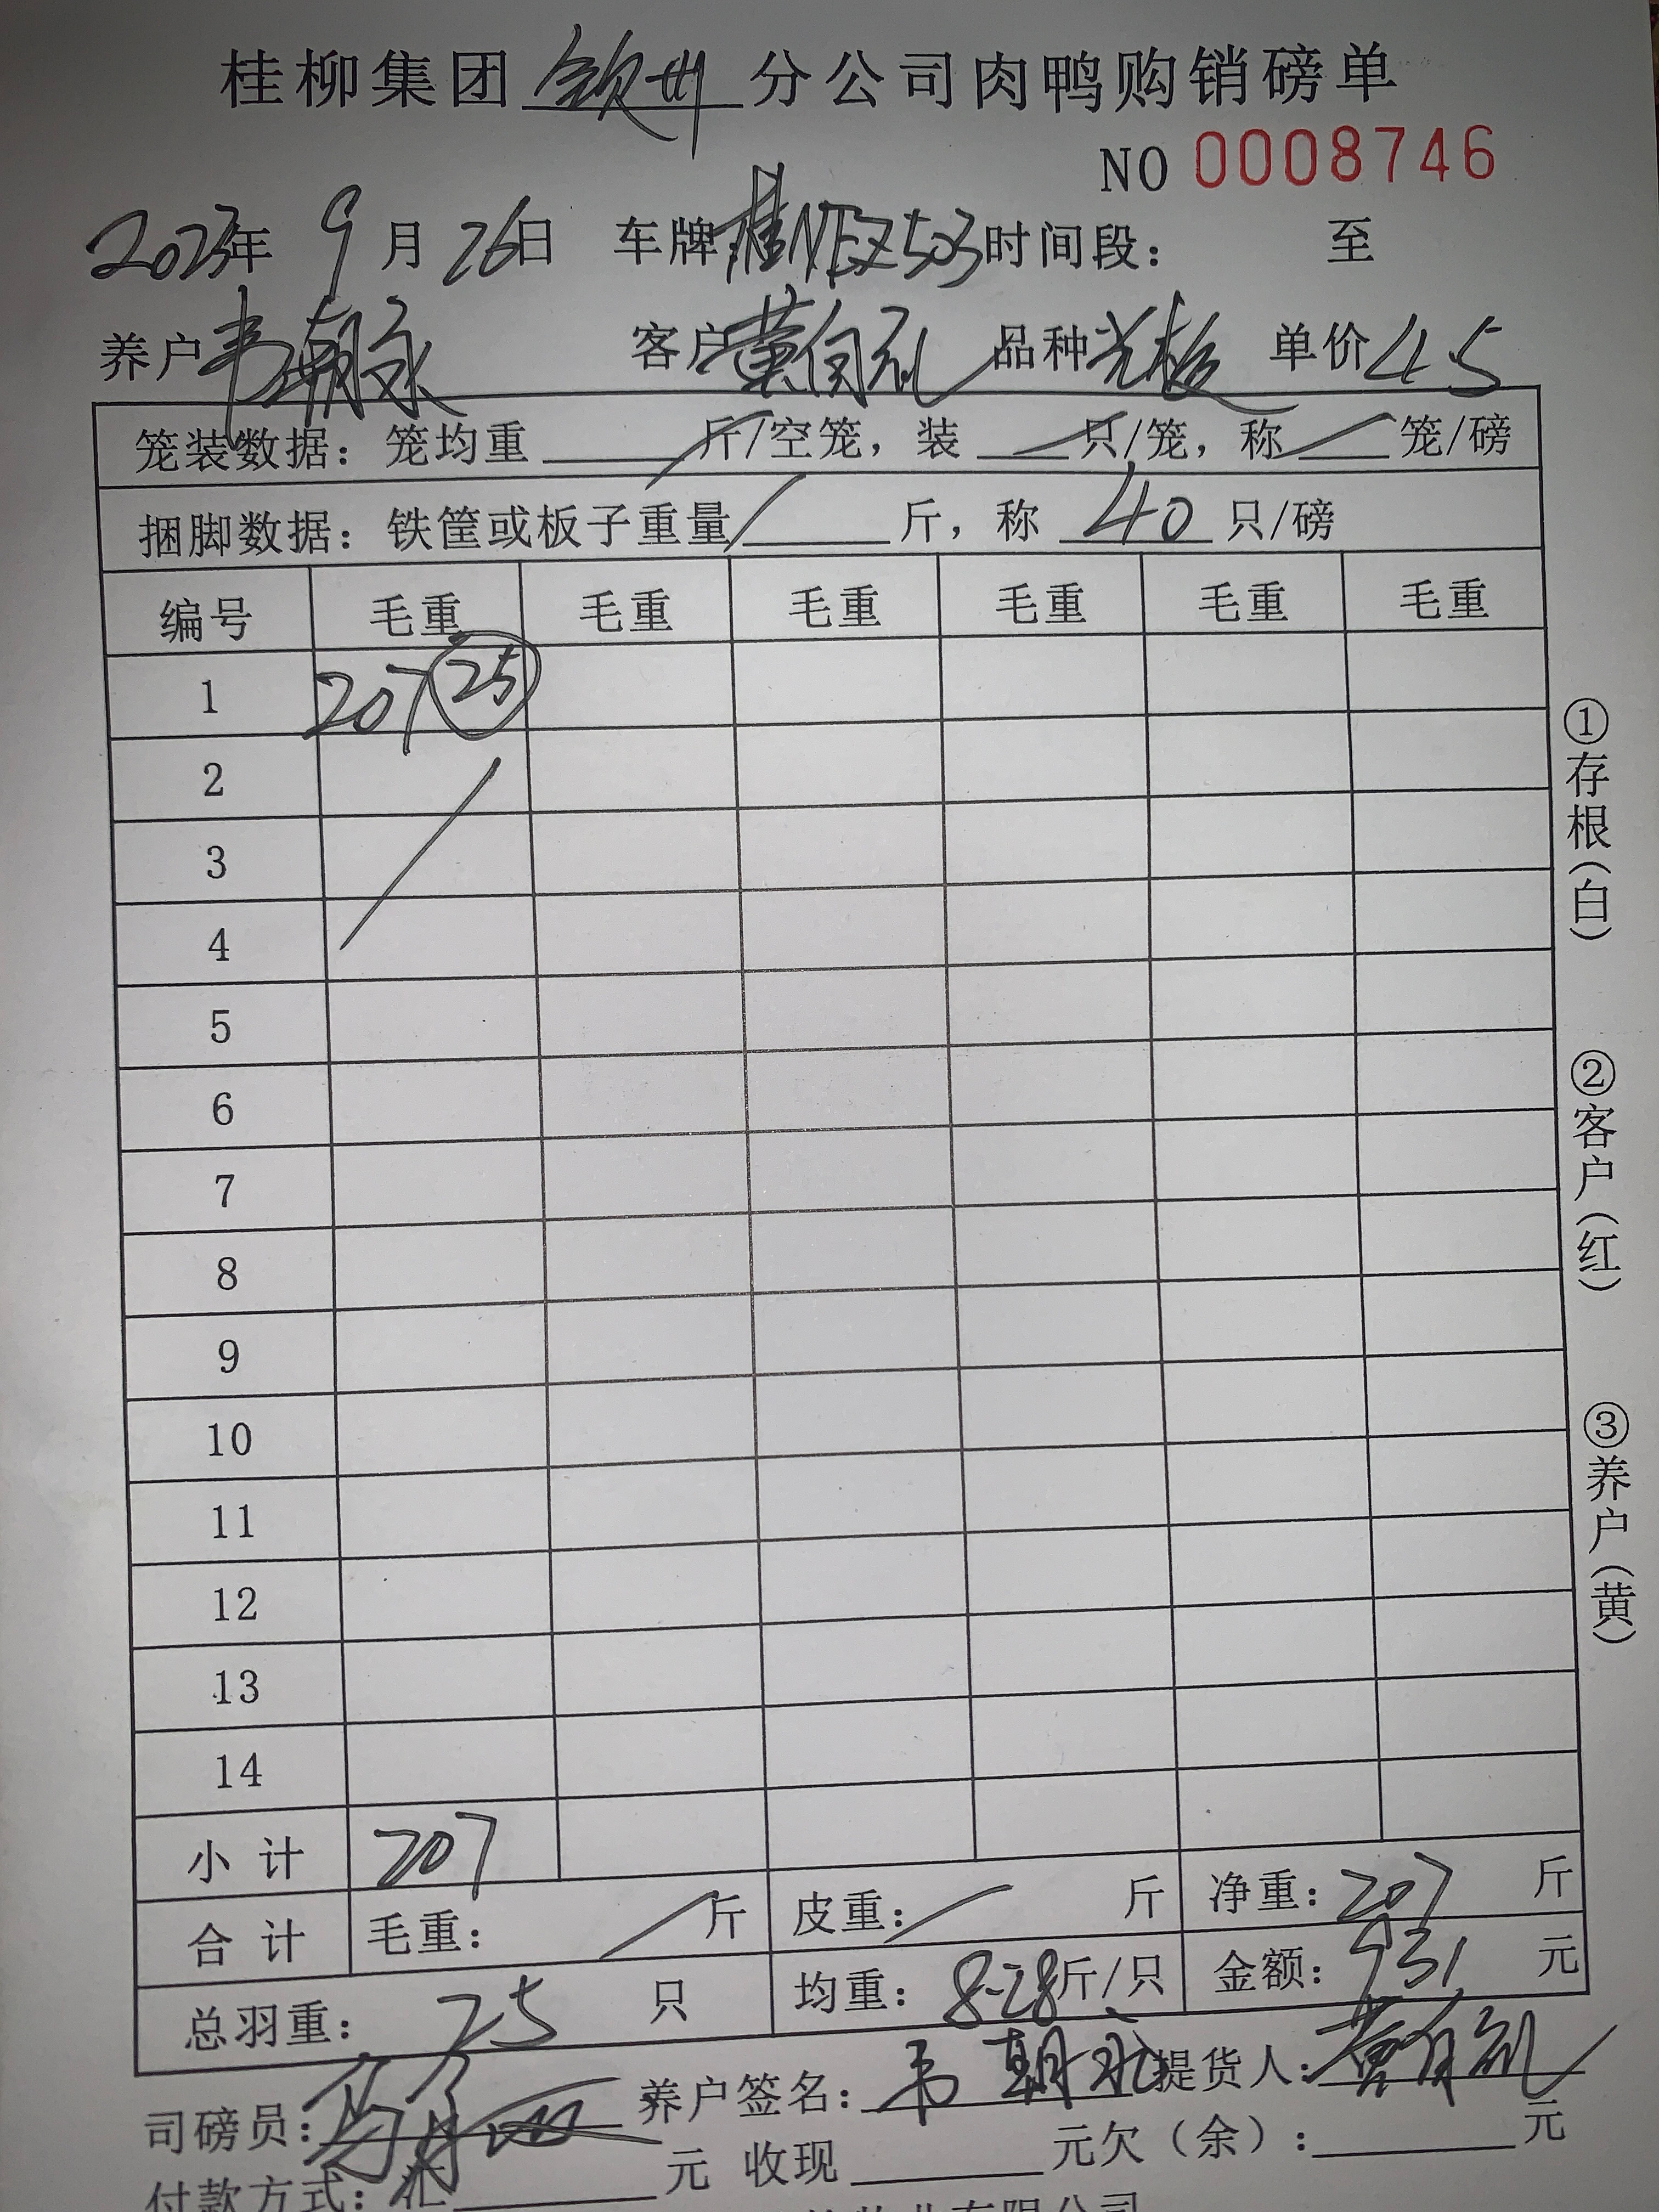 桂柳集团 钦州 分公司肉鸭购销磅单
NO 0008746
2023年 9月 26日 车牌:桂NEZ503 时间段: 至
养户 韦朝永 客户 黄 品种 单价 4.5
笼装数据: 笼均重 斤/空笼, 装 只/笼, 称 笼/磅
捆脚数据: 铁筐或板子重量 斤, 称 40 只/磅
编号 毛重 毛重 毛重 毛重 毛重 毛重
1 207 25
2
3
4
5
6
7
8
9
10
11
12
13
14
小计 207
合计 毛重: 斤 皮重: 斤 净重: 207 斤
总羽重: 25 只 均重: 8-28 斤/只 金额: 931 元
司磅员: 养户签名: 韦朝永 提货人: 黄
付款方式: 汇 元 收现 元欠(余): 元
①存根(白)
②客户(红)
③养户(黄)